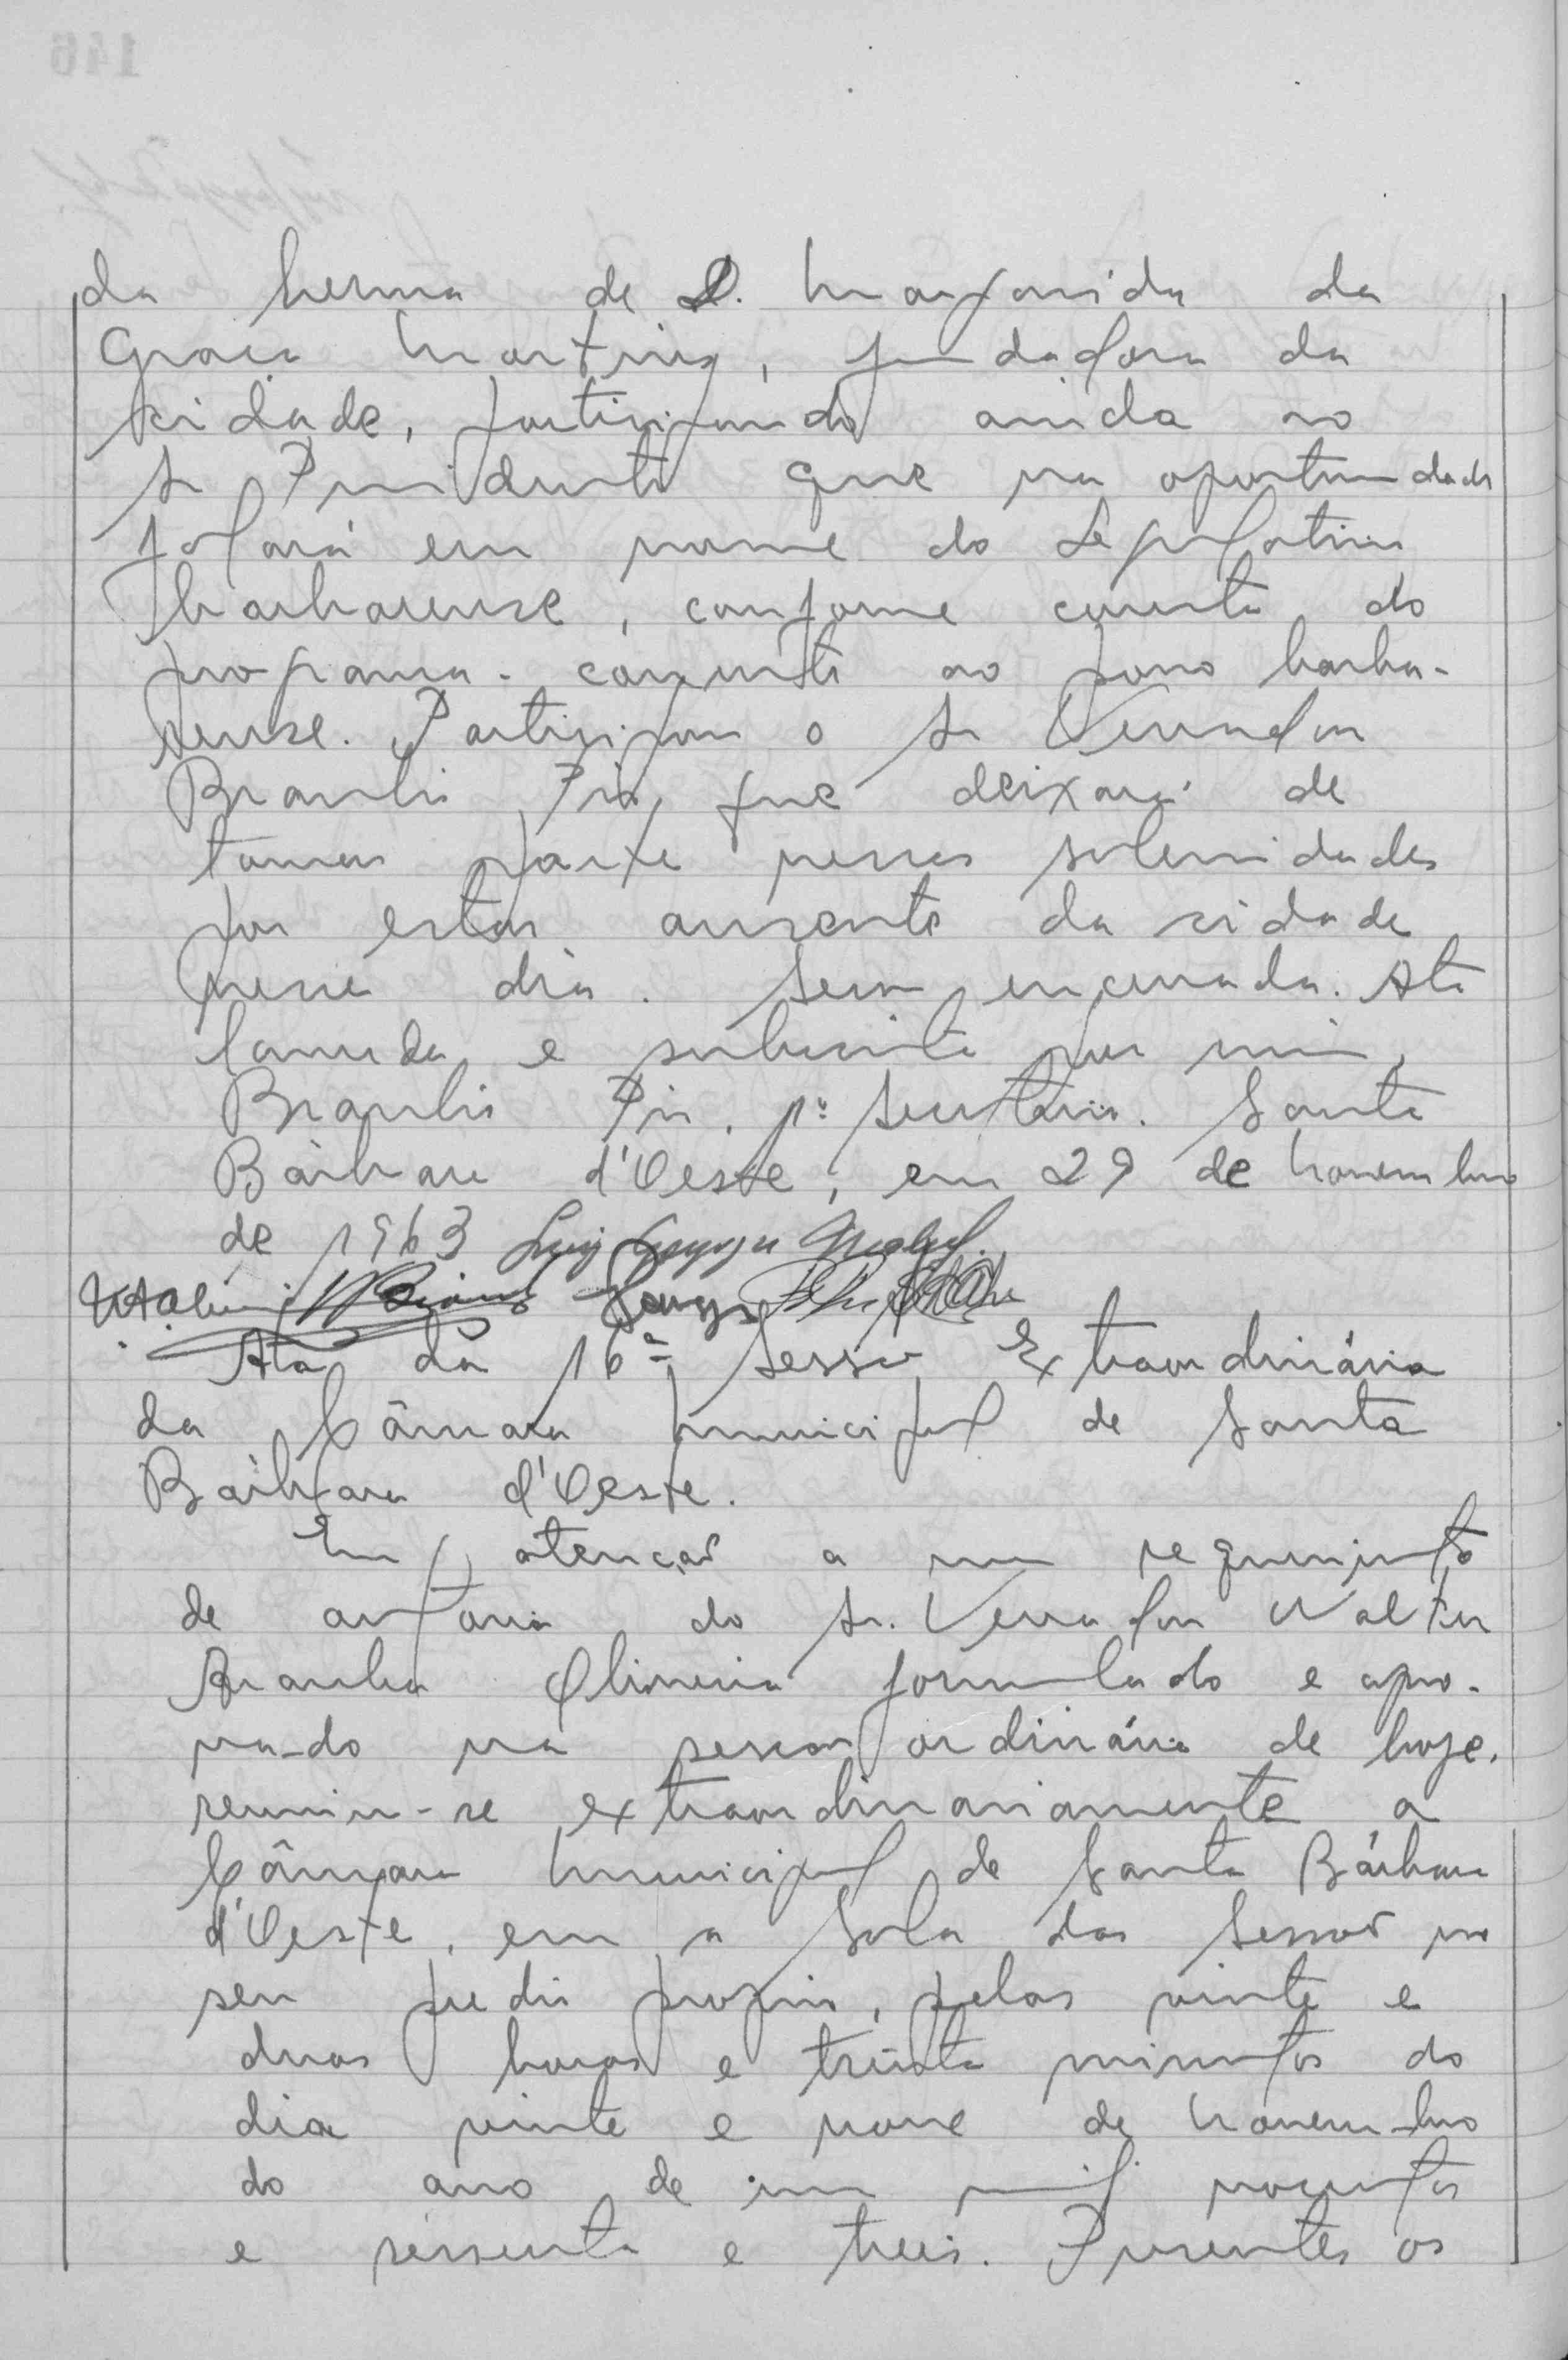 da herma de D. Margarida da
Graça Martins, fundadora da
cidade, participando ainda ao
Sr Presidente que na oportunidade
falará em nome do Legislativo
barbarense, conforme consta do
programa. convite ao povo barba-
rense. Participou o Sr Vereador
Braulio Pio, que deixará de
tomar parte nessas solenidades
por estar ausente da cidade
nesse dia. Sessão encerrada. Ata
lavrada e subscrita por mim,
Braulio Pio, 1º Secretário. Santa
Bárbara d'Oeste, em 29 de Novembro
de 1963
Ata da 16ª Sessão Extraordinária
da Câmara Municipal de Santa
Bárbara d'Oeste.
Em atenção a um requerimento
de autoria do Sr. Vereador Walter
Aranha Oliveira formulado e apro-
vado na sessão ordinária de hoje,
reuniu-se extraordinariamente a
Câmara Municipal de Santa Bárbara
d'Oeste, em a Sala das Sessões no
seu predio proprio, pelas vinte e
duas horas e trinta minutos do
dia vinte e nove de Novembro
do ano de um mil novecentos
e sessenta e treis. Presentes os